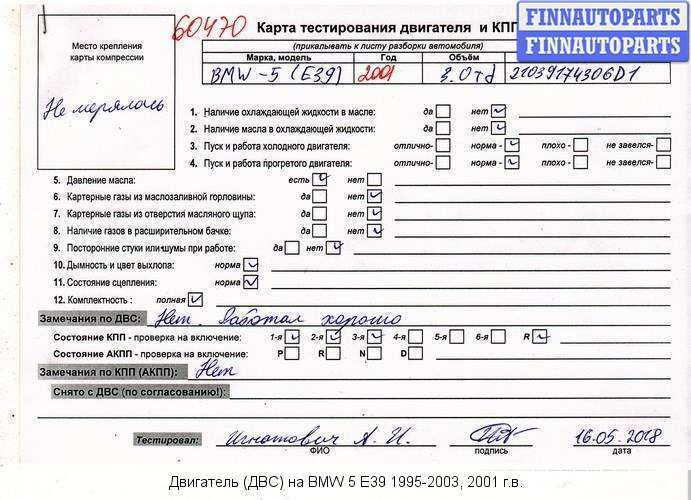 60470 Карта тестирования двигателя и КПП
FINNAUTOPARTS
FINNAUTOPARTS
(прикалывать к листу разборки автомобиля)
Место крепления
карты компрессии
Марка, модель Год Объём
BMW-5 (E39) 2001 3.0td 21039174306D1
Не мерялось
1. Наличие охлаждающей жидкости в масле: да нет
2. Наличие масла в охлаждающей жидкости: да нет
3. Пуск и работа холодного двигателя: отлично- норма - плохо - не завелся-
4. Пуск и работа прогретого двигателя: отлично- норма - плохо - не завелся-
5. Давление масла: есть нет
6. Картерные газы из маслозаливной горловины: да нет
7. Картерные газы из отверстия масляного щупа: да нет
8. Наличие газов в расширительном бачке: да нет
9. Посторонние стуки или шумы при работе: да нет
10. Дымность и цвет выхлопа: норма
11. Состояние сцепления: норма
12. Комплектность : полная
Замечания по ДВС: Нет. Работал хорошо
Состояние КПП - проверка на включение: 1-я 2-я 3-я 4-я 5-я 6-я R
Состояние АКПП - проверка на включение: P R N D
Замечания по КПП (АКПП): Нет
Снято с ДВС (по согласованию!):
Тестировал: Игнатович А. И. 16.05.2018
ФИО подпись дата
Двигатель (ДВС) на BMW 5 E39 1995-2003, 2001 г.в.